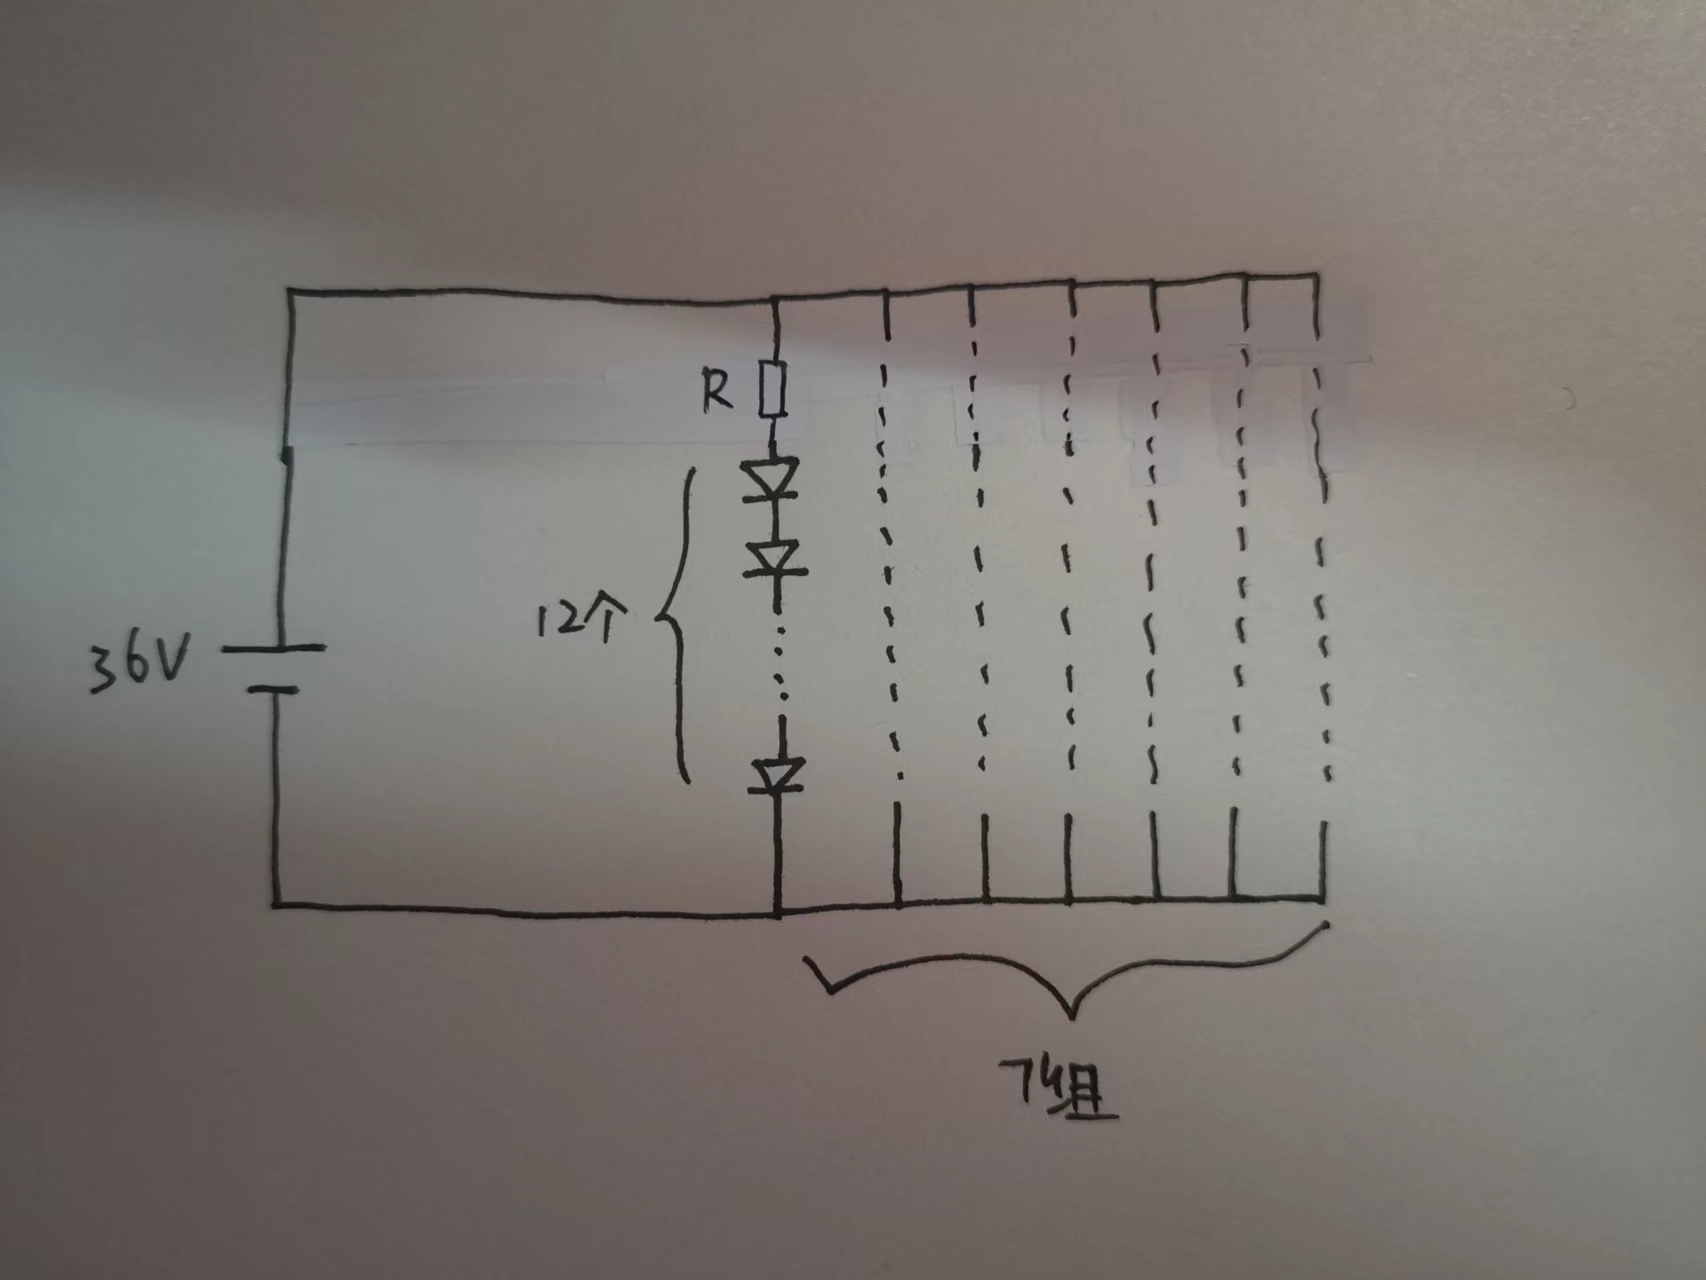 R
12个
36V
7组